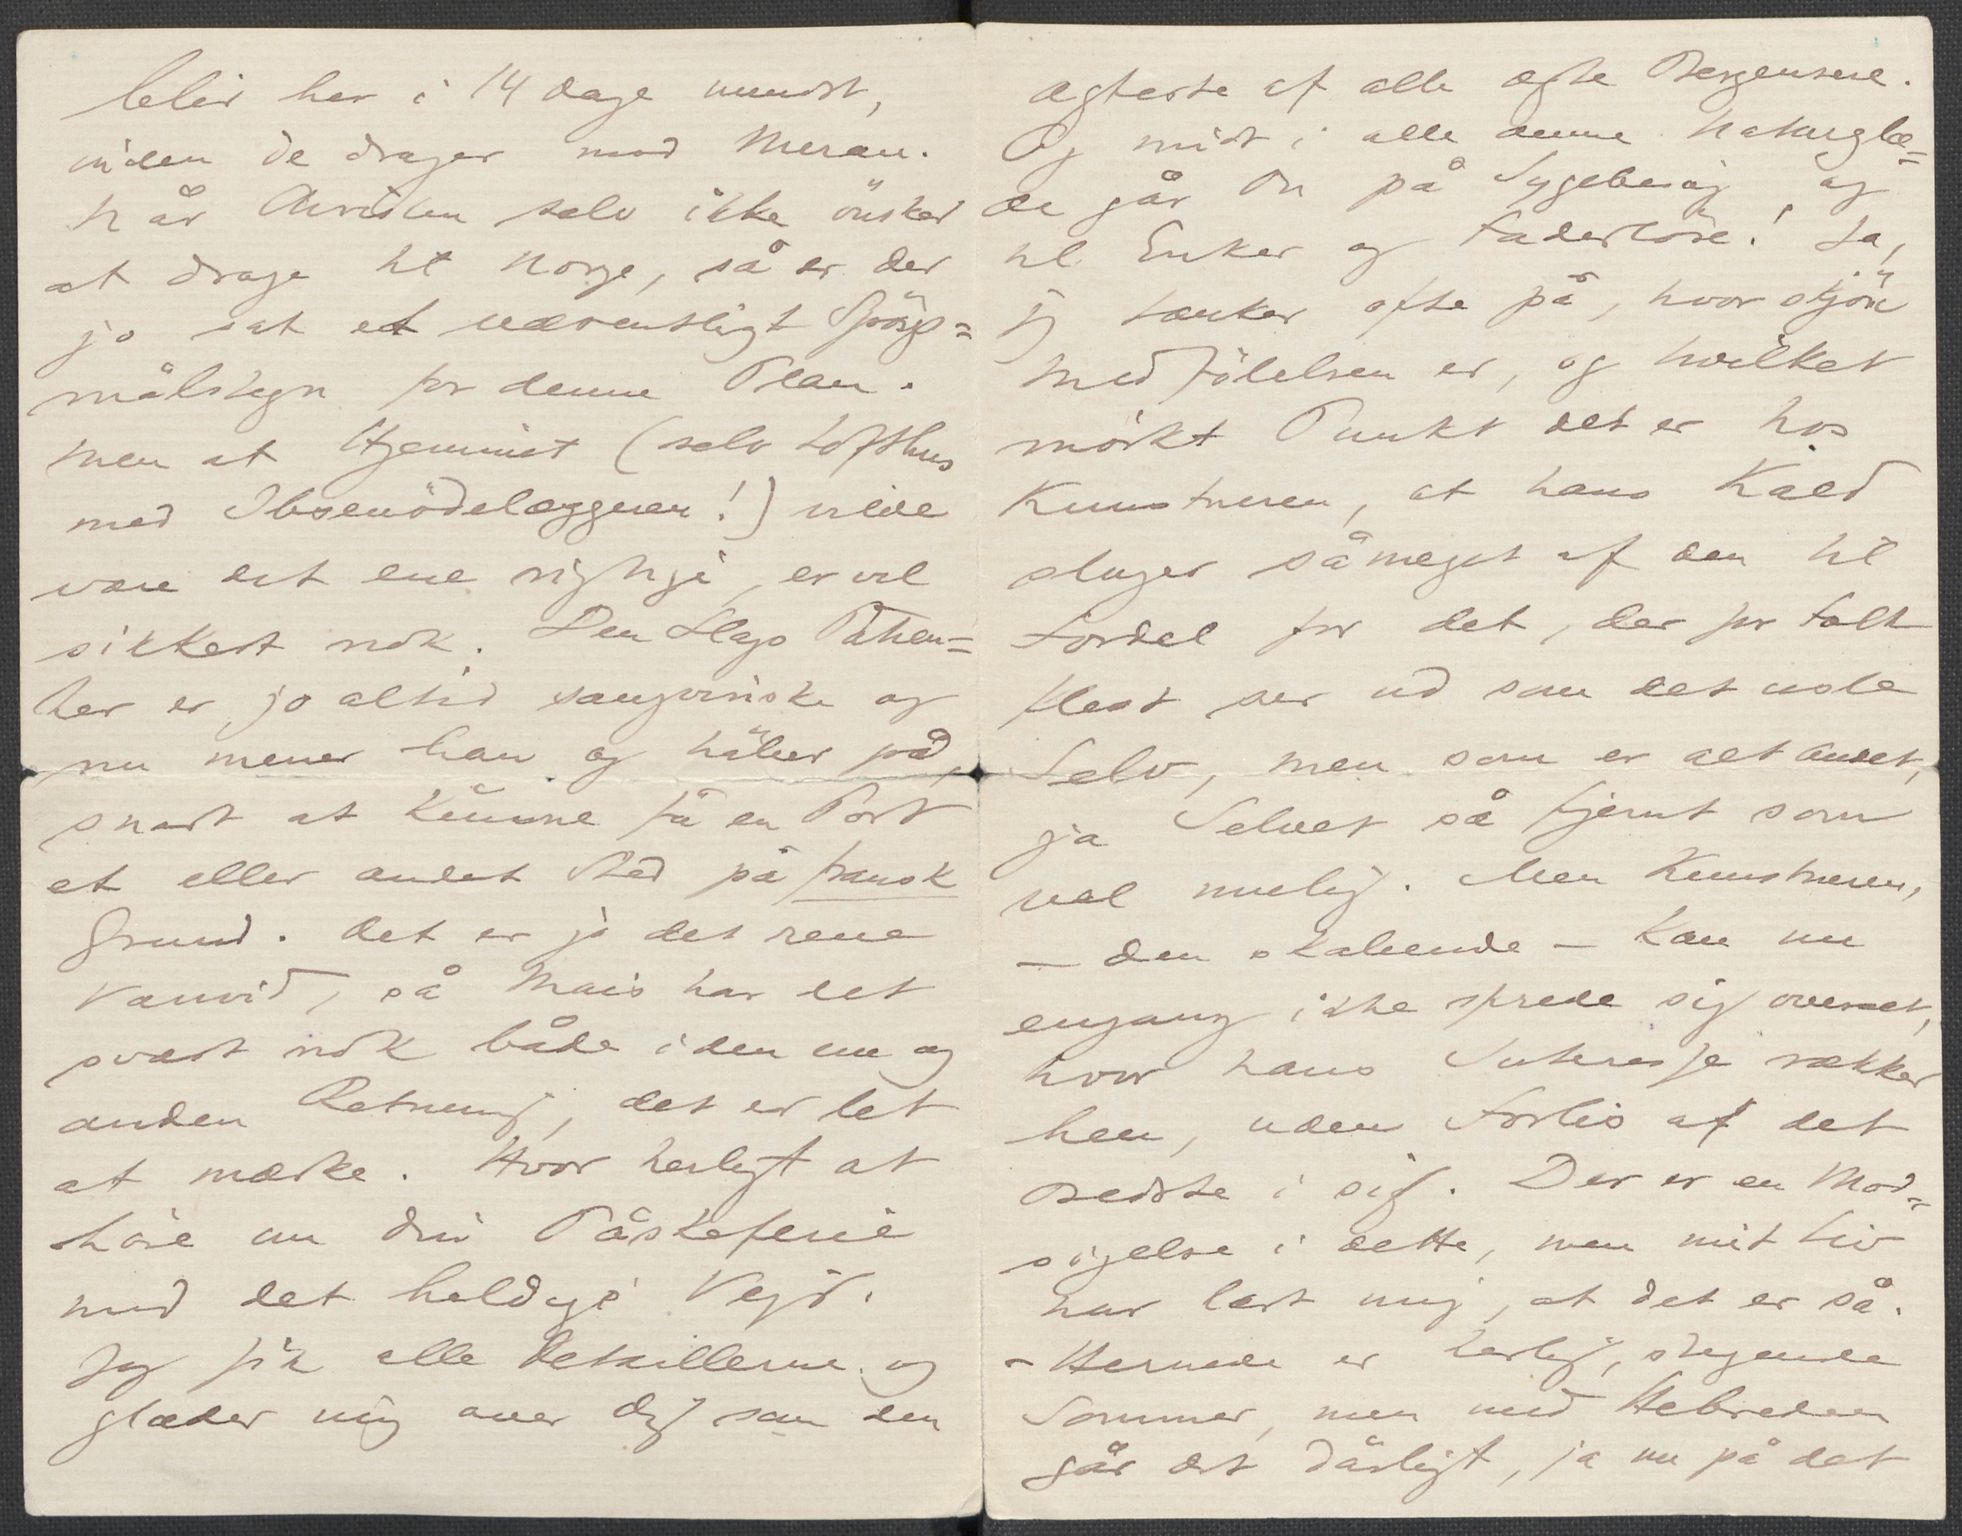 blir her i 14 dage mindst,
inden de drager mod Meran.
Når selv ikke ønsker
at drage til Norge, så er der
jo sat et uvæsentligt Spørgs=
målstegn for denne Plan.
Men at Hjemmet (selv Lofthus
med Ibsenödelæggeren!) vilde
være det ene rigtige, er vel
sikkert nok. Den Slags Patien=
ter er jo altid sangvinske og
nu mener han og håber på,
snart at kunne få en Post
et eller andet Sted på fransk
Grund. Det er jo det rene
Vanvid, så Mais har det
svært nok både i den ene og
anden Retning, det er let
at mærke. Hvor herligt at
høre om din Påskeferie
med det heldige Vejr.
Jeg fik alle Detaillerne og
glæder mig over dig som den
ægteste af alle ægte Bergensere.
Og midt i alle denne Naturglæ=
de går Du på Sygebesøg og
til Enker og Faderløse! Ja,
jeg tænker ofte på, hvor skjön
Medfölelsen er, og hvilket
mörkt Punkt det er hos
Kunstneren, at hans Kald
sluger såmeget af den til
Fordel for det, der for Folk
flest ser ud som det usle
Selv, men som er alt andet,
ja Selvet så fjernt som
vel muelig. Men Kunstneren,
– den skabende – kan nu
engang ikke sprede sig overalt,
hvor hans Interesse rækker
hen, uden Forlis af det
bedste i sig. Der er en Mod=
sigelse i dette, men mit Liv
har lært mig, at det er så.
– Hernede er herlig, stegende
Sommer, men med Helbreden
går det dårligt, ja nu på det